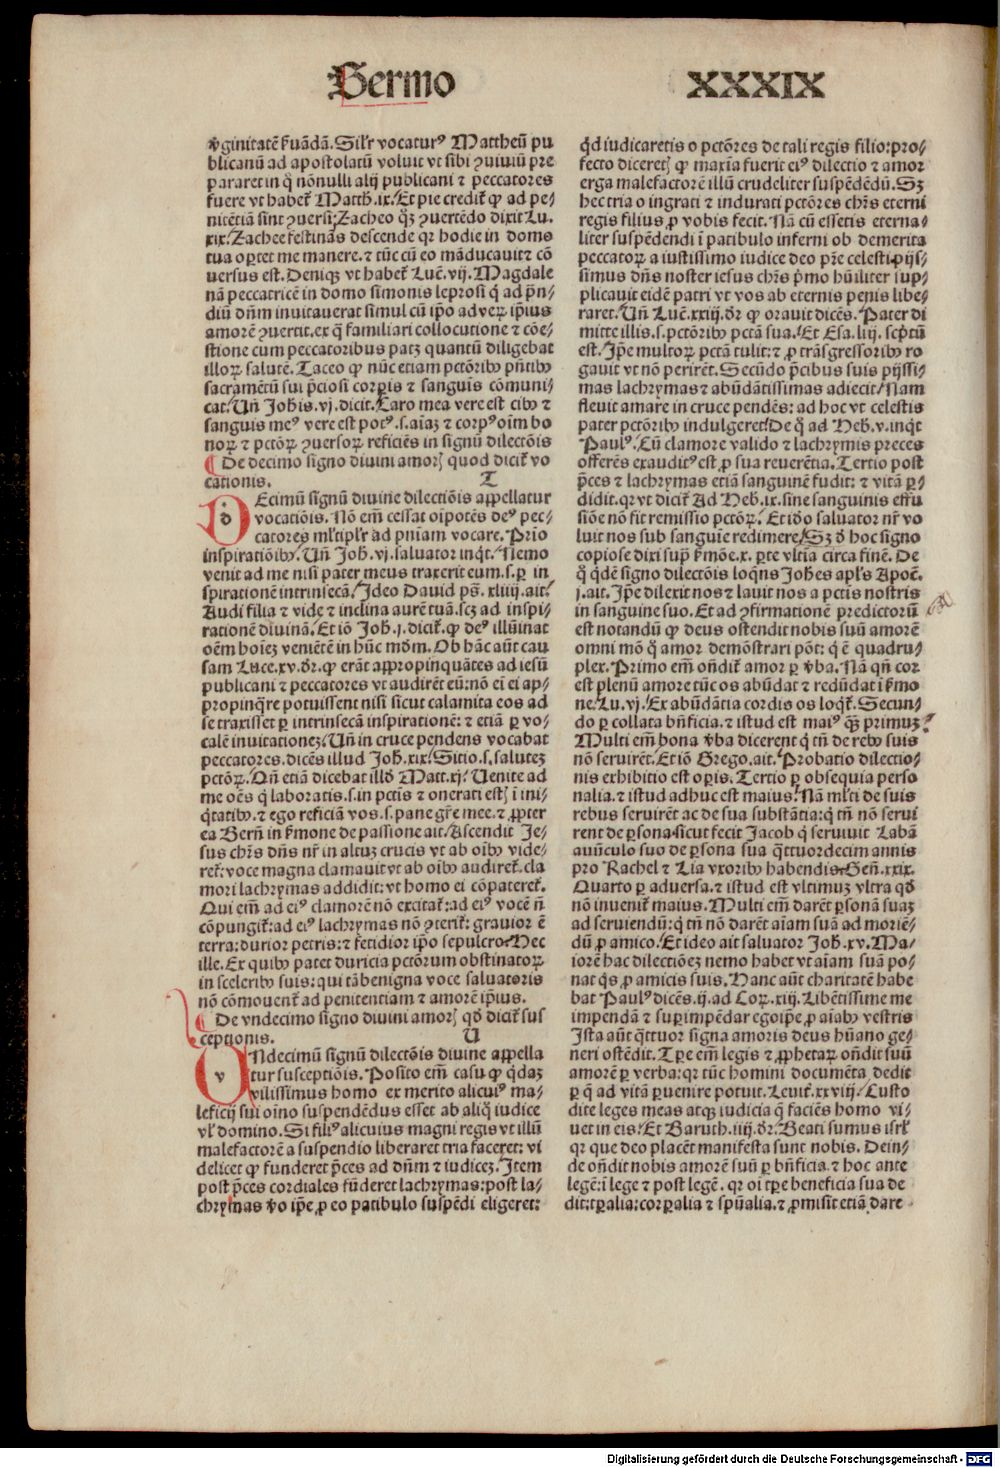 Sermo XXXIX
v̄ginitatē ẜuādā. Sil'r vocaturꝰ Mattheū pu
blicanū ad apostolatū voluit vt sibi ꝯuiuiū pre
pararet in q̊ nōnulli alij publicani ⁊ peccatores
fuere vt habet᷑ Matth̄.ix. Et pie credit᷑ ꝙ ad pe-
nitētiā sint ꝯuersi: Zacheo q̄ꝫ ꝯuertēdo dixit Lu.
xix. Zachee festinās descende qꝛ hodie in domo
tua oꝑtet me manere. ⁊ tūc cū eo māducauit ⁊ cō
uersus est. Deniqꝫ vt habet᷑ Luc̄.vij. Magdale
nā peccatricē in domo simonis leprosi q̄ ad p̄n-
diū dn̄m inuitauerat simul cū ip̄o ad veꝝ ip̄ius
amorē ꝯuertit. ex q̄ familiari collocutione ⁊ cōe-
stione cum peccatoribus patꝫ quantū diligebat
illoꝝ salutē. Taceo ꝙ nūc etiam pctōribꝰ pn̄tibꝰ
sacramētū sui p̄ciosi corꝑis ⁊ sanguis cōmuni-
cat. Un̄ Joh̄is.vj. dicit. Caro mea vere est cibꝰ ⁊
sanguis meꝰ vere est potꝰ. s. aīaꝫ ⁊ corpꝰ oīm bo
noꝝ ⁊ pctōꝝ ꝯuersoꝝ reficiēs in signū dilectōis
¶ De decimo signo diuini amoris quod dicit᷑ vo
cationis. T
DEcimū signū diuine dilectiōis appellatur
vocatiōis. Nō em̄ cessat oīpotēs deꝰ pec-
catores ml'tipl'r ad pniam vocare. Prīo
inspiratiōibꝰ. Un̄ Joh̄.vj. saluator inq̇t. Nemo
venit ad me nisi pater meus traxerit eum. s. ꝑ in
spirationē intrinsecā. Ideo Dauid ps̄.xliiij. ait.
Audi filia ⁊ vide ⁊ inclina aurē tuā. scꝫ ad inspi-
rationē diuinā. Et iō Joh̄.j. dicit᷑. ꝙ deꝰ illūinat
oēm hoīeꝫ veniētē in hūc mōm. Ob hāc aūt cau
sam Luce.xv. dr̄. ꝙ erāt appropinquātes ad iesū
publicani ⁊ peccatores vt audirēt eū: nō ei ei ap-
propinq̄re potuissent nisi sicut calamita eos ad
se traxisset ꝑ intrinsecā inspirationē: ⁊ etiā ꝑ vo-
calē inuitationeꝫ. Un̄ in cruce pendens vocabat
peccatores. dicēs illud Joh̄.xix. Sitio. s. saluteꝫ
pctōꝝ. Qn̄ etiā dicebat illd̄ Matt.xj. Uenite ad
me oēs q̇ laboratis. s. in pctīs ⁊ onerati estis ī ini-
q̇tatibꝰ. ⁊ ego reficiā vos. s. pane gr̄e mee. ⁊ ꝓpter
ea Bern̄ in ẜmone de passione ait. Ascendit Je-
sus chr̄s dn̄s nr̄ in altuꝫ crucis vt ab oībꝰ vide-
ret᷑: voce magna clamauit vt ab oībꝰ audiret᷑. cla
mori lachrymas addidit: vt homo ei cōpateret᷑.
Qui em̄ ad eiꝰ clamorē nō excitat᷑: ad eiꝰ vocē n̄
cōpungit᷑: ad eiꝰ lachrymas nō ꝯterit᷑: grauior ē
terra: durior petris: ⁊ fetidior ip̄o sepulcro. Hec
ille. Ex quibꝰ patet duricia pctōrum obstinatoꝝ
in sceleribꝰ suis: qui tā benigna voce saluatoris
nō cōmouent᷑ ad penitentiam ⁊ amorē ip̄ius.
¶ De vndecimo signo diuini amoris qd̄ dicit᷑ sus
ceptionis. U
UNdecimū signū dilectōis diuine appella
tur susceptiōis. Posito em̄ casu ꝙ q̇daꝫ
vilissimus homo ex merito alicuiꝰ ma-
leficij sui oīno suspendēdus esset ab aliq̊ iudice
vl' domino. Si filiꝰ alicuius magni regis vt illū
malefactorē a suspendio liberaret tria faceret: vi
delicet ꝙ funderet p̄ces ad dn̄m ⁊ iudiceꝫ. Item
post p̄ces cordiales fūderet lachrymas: post la-
chrymas v̄o ip̄e ꝓ eo patibulo suspēdi eligeret:
qd̄ iudicaretis o pctōres de tali regis filio: pro-
fecto diceretis ꝙ maxīa fuerit eiꝰ dilectio ⁊ amor
erga malefactorē illū crudeliter suspēdēdū. Sꝫ
hec tria o ingrati ⁊ indurati pctōres chr̄s eterni
regis filius ꝓ vobis fecit. Nā cū essetis eterna-
liter suspēdendi ī patibulo inferni ob demerita
peccatoꝝ a iustissimo iudice deo pr̄e celesti: pijs-
simus dn̄s noster iesus chr̄s p̄mo hūiliter sup-
plicauit eidē patri vt vos ab eternis penis libe-
raret. Un̄ Luc̄.xxiij. dr̄ ꝙ orauit dicēs. Pater di
mitte illis. s. pctōribꝰ pctā sua. Et Esa.liij. scp̄tū
est. Ip̄e multoꝝ pctā tulit: ⁊ ꝓ trāsgressoribꝰ ro
gauit vt nō perirēt. Secūdo p̄cibus suis pijssi-
mas lachrymas ⁊ abūdātissimas adiecit. Nam
fleuit amare in cruce pendēs: ad hoc vt celestis
pater pctōribꝰ indulgeret. De q̊ ad Heb.v. inq̇t
Paulꝰ. Cū clamore valido ⁊ lachrymis preces
offerēs exauditꝰ est ꝓ sua reuerētia. Tertio post
p̄ces ⁊ lachrymas etiā sanguinē fudit: ⁊ vitā ꝑ-
didit. qꝛ vt dicit᷑ Ad Heb.ix. sine sanguinis effu
siōe nō fit remissio pctōꝝ. Et id̄o saluator nr̄ vo
luit nos sub sanguīe redimere. Sꝫ d̄ hoc signo
copiose dixi sup̄ ẜmōe.x. ꝑte vltīa circa finē. De
q̊ q̇dē signo dilectōis loq̄ns Joh̄es apl's Apoc̄.
j. ait. Ip̄e dilexit nos ⁊ lauit nos a pctis nostris
in sanguine suo. Et ad ꝯfirmationē predictorū
est notandū ꝙ deus ostendit nobis suū amorē
omni mō q̊ amor demōstrari pōt: q̇ ē quadru-
plex. Primo em̄ on̄dit᷑ amor ꝑ v̄ba. Nā qn̄ cor
est plenū amore tūc os abūdat ⁊ redūdat ī ẜmo
ne. Lu.vj. Ex abūdātia cordis os loq̇t᷑. Secun-
do ꝑ collata bn̄ficia. ⁊ istud est maiꝰ qꝫ̄ primuꝫ.
Multi em̄ bona v̄ba dicerent q̇ tn̄ de rebꝰ suis
nō seruirēt. Et iō Grego. ait. Probatio dilectio-
nis exhibitio est oꝑis. Tertio ꝑ obsequia perso
nalia. ⁊ istud adhuc est maius. Nā ml'ti de suis
rebus seruirēt ac de sua substātia: q̇ tn̄ nō serui
rent de ꝑsona. sicut fecit Jacob q̇ seruiuit Labā
auūculo suo de ꝑsona sua q̄ttuordecim annis
pro Rachel ⁊ Lia vxoribꝰ habendis. Gen̄.xxix.
Quarto ꝑ aduersa. ⁊ istud est vltimuꝫ vltra qd̄
nō inuenit᷑ maius. Multi em̄ darēt ꝑsonā suaꝫ
ad seruiendū: q̇ tn̄ nō darēt aīam suā ad moriē-
dū ꝓ amico. Et ideo ait saluator Joh̄.xv. Ma-
iorē hac dilectiōeꝫ nemo habet vt aīam suā po-
nat q̇s ꝓ amicis suis. Hanc aūt charitatē habe
bat Paulꝰ dicēs.ij. ad Coꝝ.xij. Libētissime me
impendā ⁊ suꝑimpēdar egoip̄e ꝓ aīabꝰ vestris
Ista aūt q̄ttuor signa amoris deus hūano ge-
neri ostēdit. Tꝑe em̄ legis ⁊ ꝓphetaꝝ on̄dit suū
amorē ꝑ verba: qꝛ tūc homini documēta dedit
ꝑ q̄ ad vitā ꝑuenire potuit. Leuit᷑.xxviij. Custo
dite leges meas atqꝫ iudicia q̄ faciēs homo vi-
uet in eis. Et Baruth.iiij. dr̄. Beati sumus isrl'
qꝛ que deo placēt manifesta sunt nobis. Dein-
de on̄dit nobis amorē suū ꝑ bn̄ficia. ⁊ hoc ante
legē: ī lege ⁊ post legē. qꝛ oī tꝑe beneficia sua de
dit: tꝑalia: corꝑalia ⁊ spūalia. ⁊ ꝓmisit etiā dare
Digitalisierung gefördert durch die Deutsche Forschungsgemeinschaft - DFG